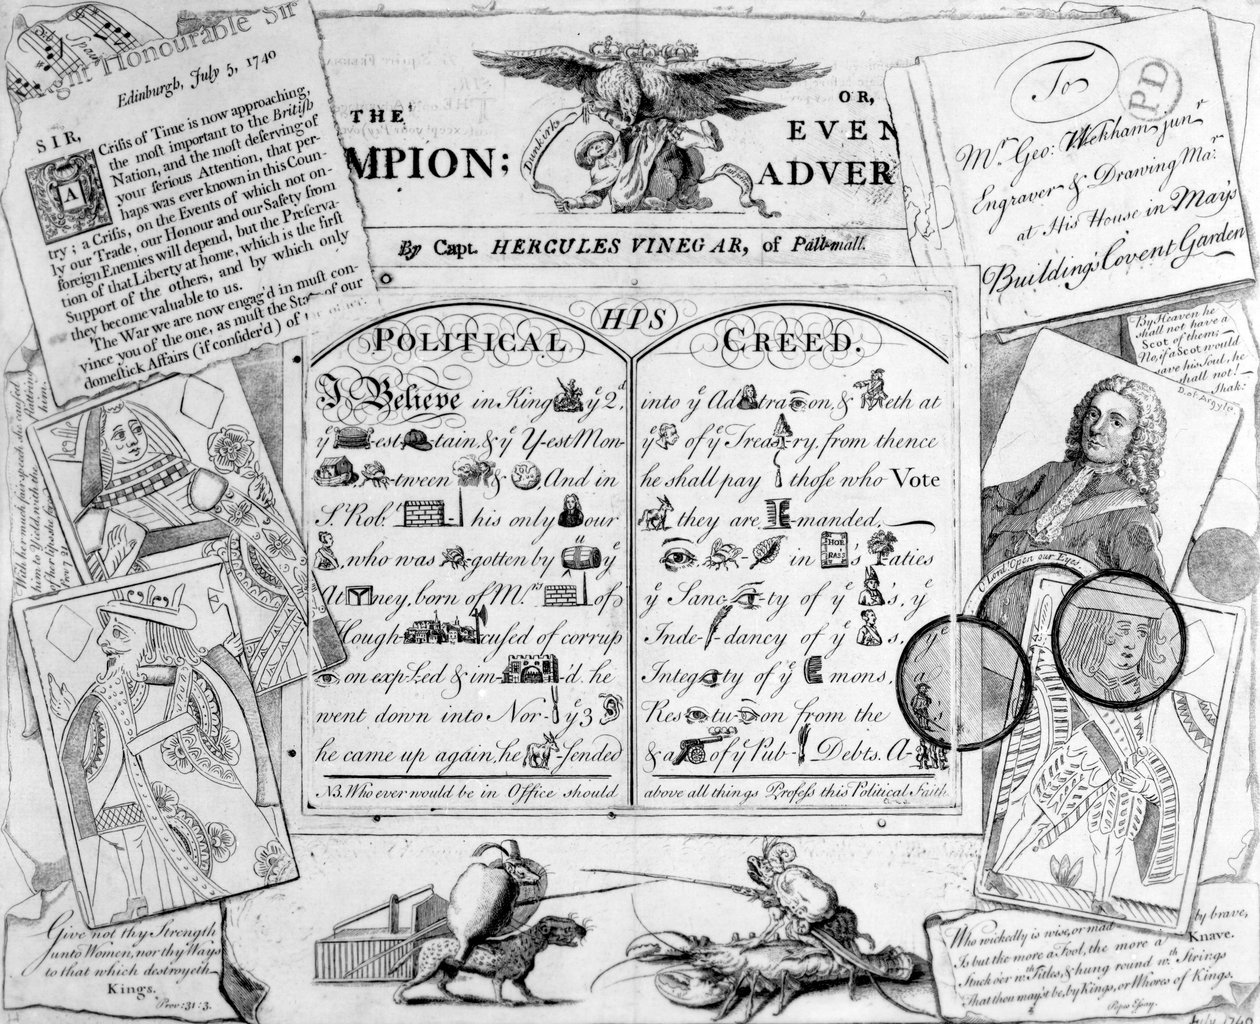 Spa
ght Honourable Sir
Edinburgh, July 5, 1740
SIR,
A Crisis of Time is now approaching,
the most important to the British
Nation, and the most deserving of
your serious Attention, that per-
haps was ever known in this Coun-
try; a Crisis, on the Events of which not on-
ly our Trade, our Honour and our Safety from
foreign Enemies will depend, but the Preserva-
tion of that Liberty at home, which is the first
Support of the others, and by which only
they become valuable to us.
The War we are now engag'd in must con-
vince you of the one, as must the State of our
domestick Affairs (if consider'd) of
THE
MPION;
OR,
EVEN
ADVER
Dunkirk
By Capt. HERCULES VINEGAR, of Pall-mall.
To
PD
Mr. Geo: Wickham junr
Engraver & Drawing Mar.
at His House in May's
Buildings Covent Garden
By Heaven he
shall not have a
Scot of them:—
No, if a Scot would
save his Soul, he
shall not!—
Shak:
D. of Argyle
HIS
POLITICAL CREED.
I Believe in King ye 2d,
ye -est -tain, & ye Y-est Mon-
-tween & , And in
Sr. Robt. - his only our
, who was -gotten by ye
At -ney, born of Mrs. of
Hough- -cused of corrup
on exp-L-ed & im- -'d. he
went down into Nor- ye 3
he came up again, he -sended
N.B. Who ever would be in Office should
into ye Ad -tra- on, & -eth at
ye of ye Trea -ry, from thence
he shall pay those who Vote
they are -manded,
- - in HOR RASS 's -aties
ye Sanc- -ty of ye 's, ye
Inde- -dancy of ye 's, ye
Integ -ty of ye -mons, a
Res -tu- -on from the
& a of ye Pub- Debts. A-
above all things Profess this Political Faith
O Lord Open our Eyes.
With her much fair speech she caused
him to Yield, with the flattering
of her lips she forced him.
Prov 7. 21.
Give not thy Strength
unto Women, nor thy Ways
to that which destroyeth
Kings.
Prov: 31: 3.
Who wickedly is wise, or madly brave,
Is but the more a Fool, the more a Knave.
Stuck o'er wth. Titles, & hung round wth. Strings
That thou may'st be, by Kings, or Whores of Kings.
Popes Essay.
July 1740